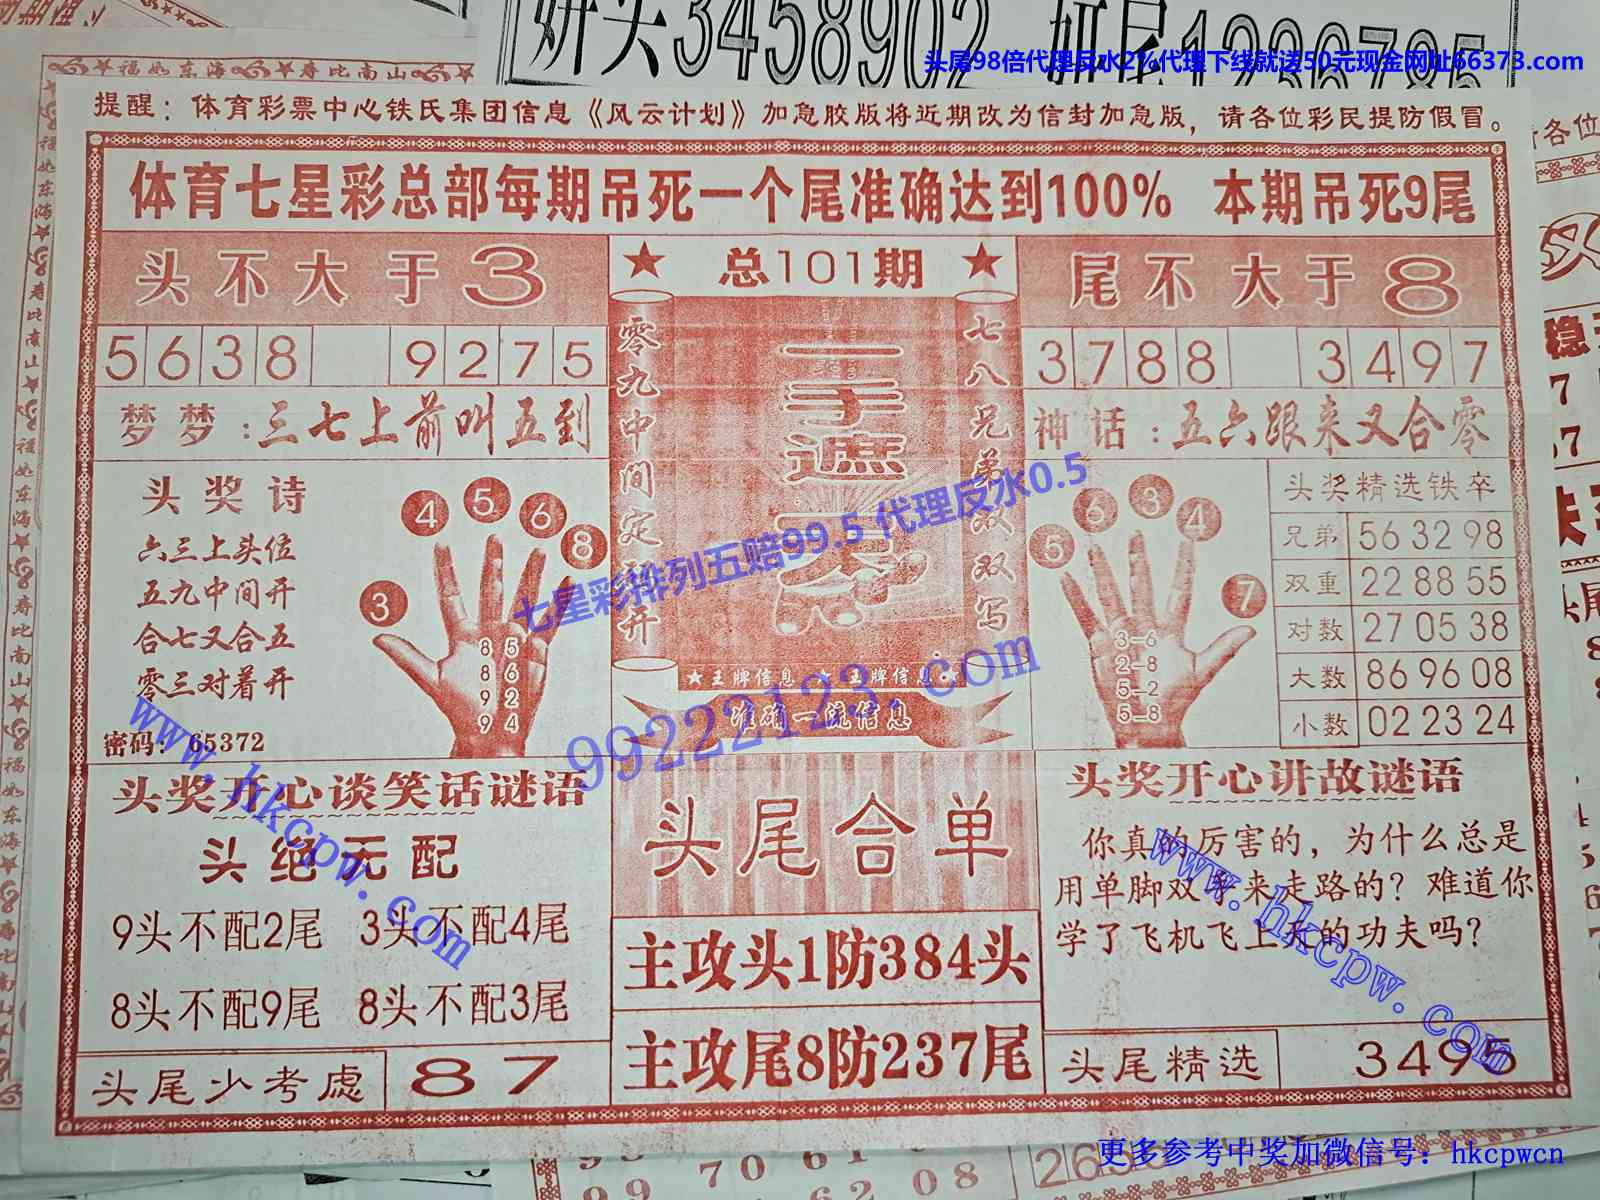 妍头3458902 妍尾1236785
头尾98倍代理反水2%代理下线就送50元现金网址66373.com
福如东海 寿比南山
提醒：体育彩票中心铁氏集团信息《风云计划》加急胶版将近期改为信封加急版，请各位彩民提防假冒。
体育七星彩总部每期吊死一个尾准确达到100% 本期吊死9尾
头不大于3
5638 9275
梦梦：三七上前叫五到
头奖诗
六三上头位
五九中间开
合七又合五
零三对着开
密码：65372
3 4 5 6 8
8 5
8 6
9 2
9 4
总101期
零九中间定
开
一手遮天
七八兄弟双双写
★王牌信息 ★ 王牌信息
准确一流信息
尾不大于8
3788 3497
神话：五六跟来又合零
5 6 3 4 7
3-6
2-8
5-2
5-8
头奖精选铁卒
兄弟 56 32 98
双重 22 88 55
对数 27 05 38
大数 86 96 08
小数 02 23 24
七星彩排列五赔99.5 代理反水0.5
99222123.com
www.hkcpw.com
头奖开心谈笑话谜语
头绝无配
9头不配2尾 3头不配4尾
8头不配9尾 8头不配3尾
头尾少考虑 87
头尾合单
主攻头1防384头
主攻尾8防237尾
头奖开心讲故谜语
你真的厉害的，为什么总是
用单脚双手来走路的？难道你
学了飞机飞上天的功夫吗？
www.hkcpw.com
头尾精选 3495
更多参考中奖加微信号：hkcpwcn